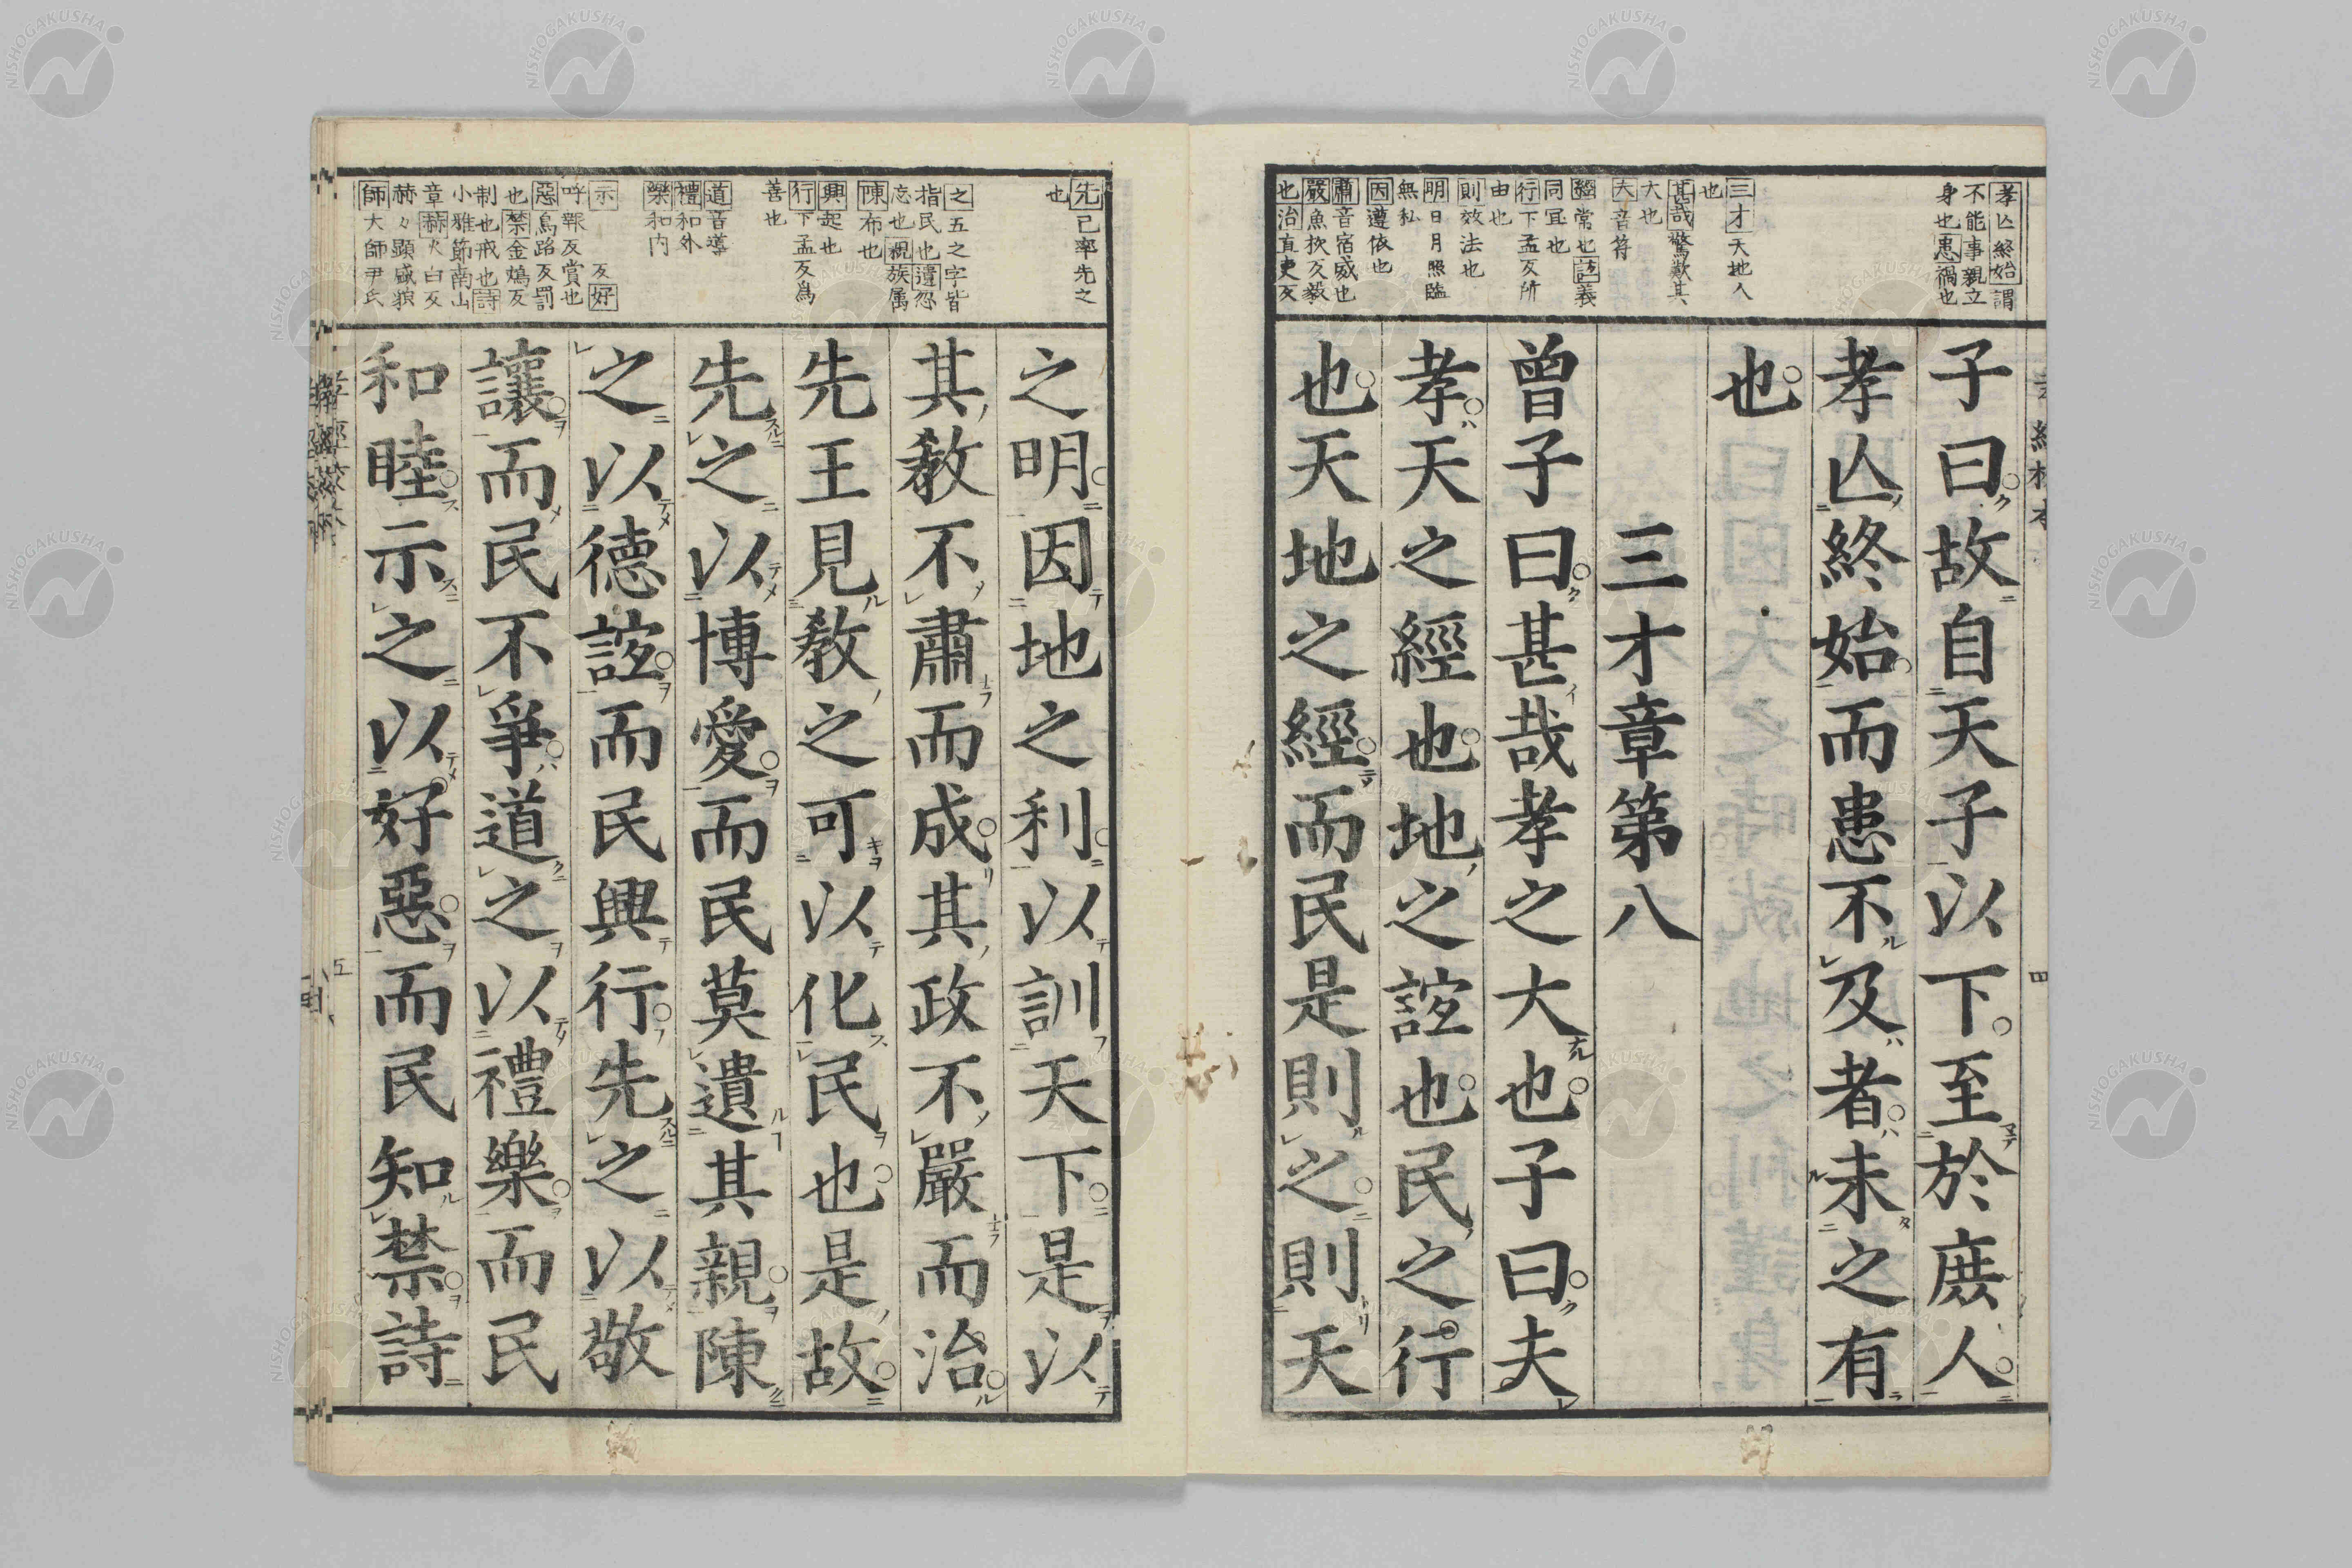 孝亾終始謂
不能事親立
身也患禍也
三才天地人
也
甚哉驚歎其
大也
夫音符
經常也誼義
同宜也
行下孟反所
由也
則效法也
明日月照臨
無私
因遵依也
肅音宿威也
嚴魚杴反毅
也治直吏反
子曰故自天子以下至於庶人
孝亾終始而患不及者未之有
也
三才章第八
曾子曰甚哉孝之大也子曰夫
孝天之經也地之誼也民之行
也天地之經而民是則之則天
四
先己率先之
也
之五之字皆
指民也遺忽
忘也親族属
陳布也
興起也
行下孟反爲
善也
道音導
禮和外
樂和内
示 反好
呼報反賞也
惡烏路反罰
也禁金鴆反
制也戒也詩
小雅節南山
章赫火白反
赫々顕盛貌
師大師尹氏
之明因地之利以訓天下是以
其教不肅而成其政不嚴而治
先王見教之可以化民也是故
先之以博愛而民莫遺其親陳
之以德誼而民興行先之以敬
讓而民不爭道之以禮樂而民
和睦示之以好惡而民知禁詩
五
NISHOGAKUSHA